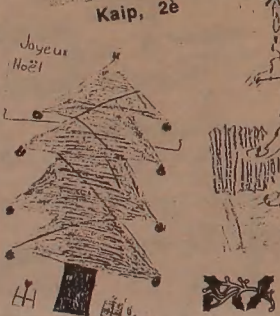 Kaip, 2è
Joyeux
Noël